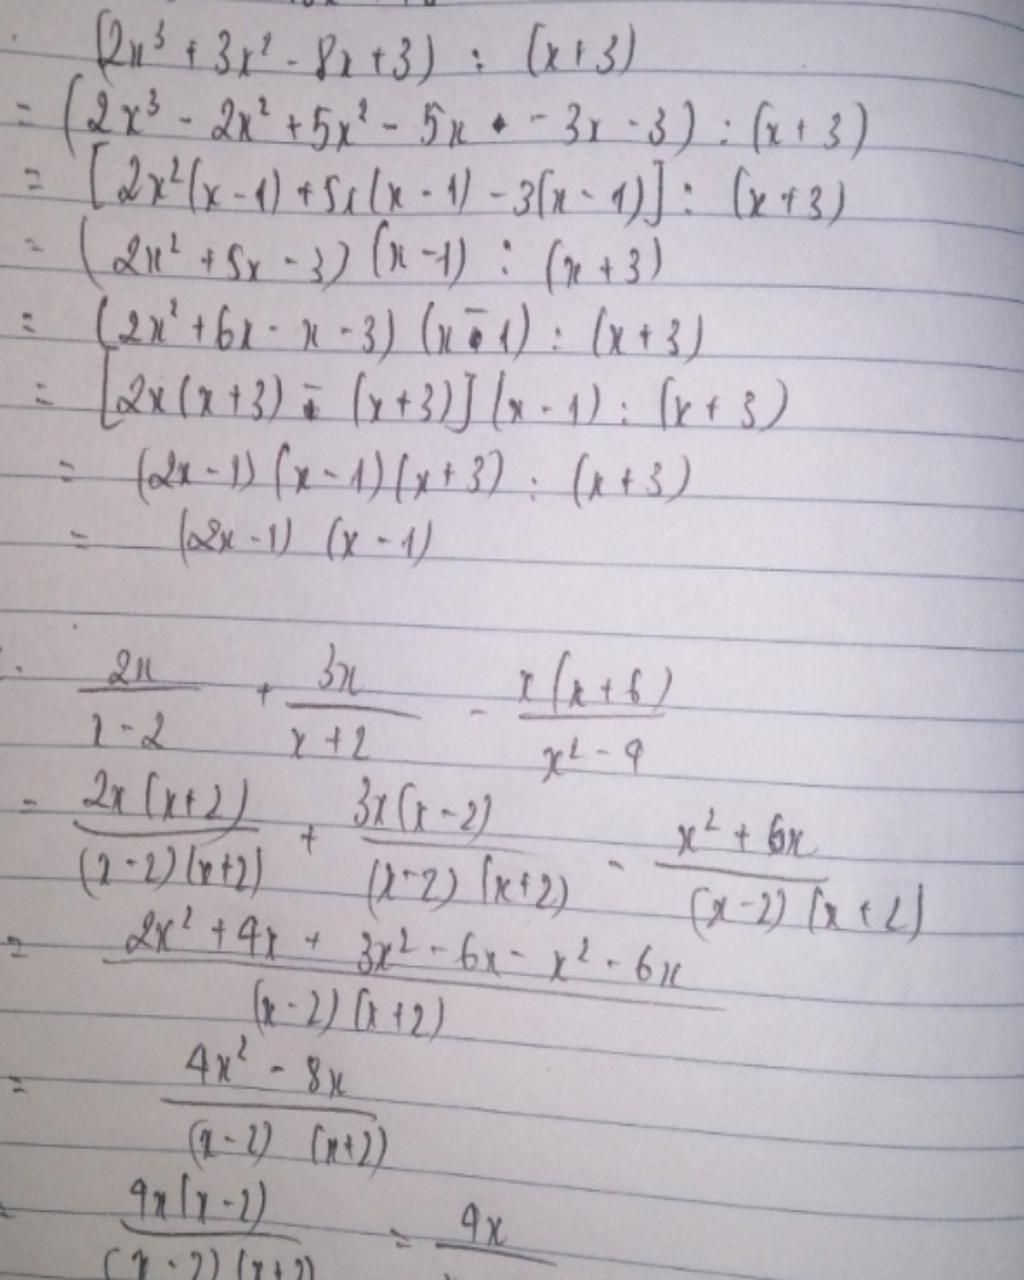 (2x³ + 3x² - 8x + 3) : (x + 3)
= (2x³ - 2x² + 5x² - 5x - 3x - 3) : (x + 3)
= [2x²(x - 1) + 5x(x - 1) - 3(x - 1)] : (x + 3)
= (2x² + 5x - 3) (x - 1) : (x + 3)
= (2x² + 6x - x - 3) (x - 1) : (x + 3)
= [2x(x + 3) - (x + 3)] (x - 1) : (x + 3)
= (2x - 1) (x - 1) (x + 3) : (x + 3)
= (2x - 1) (x - 1)
2x/(x - 2) + 3x/(x + 2) - x(x + 6)/(x² - 4)
= 2x(x + 2)/((x - 2)(x + 2)) + 3x(x - 2)/((x - 2)(x + 2)) - (x² + 6x)/((x - 2)(x + 2))
= (2x² + 4x + 3x² - 6x - x² - 6x)/((x - 2)(x + 2))
= (4x² - 8x)/((x - 2)(x + 2))
= 4x(x - 2)/((x - 2)(x + 2)) = 4x